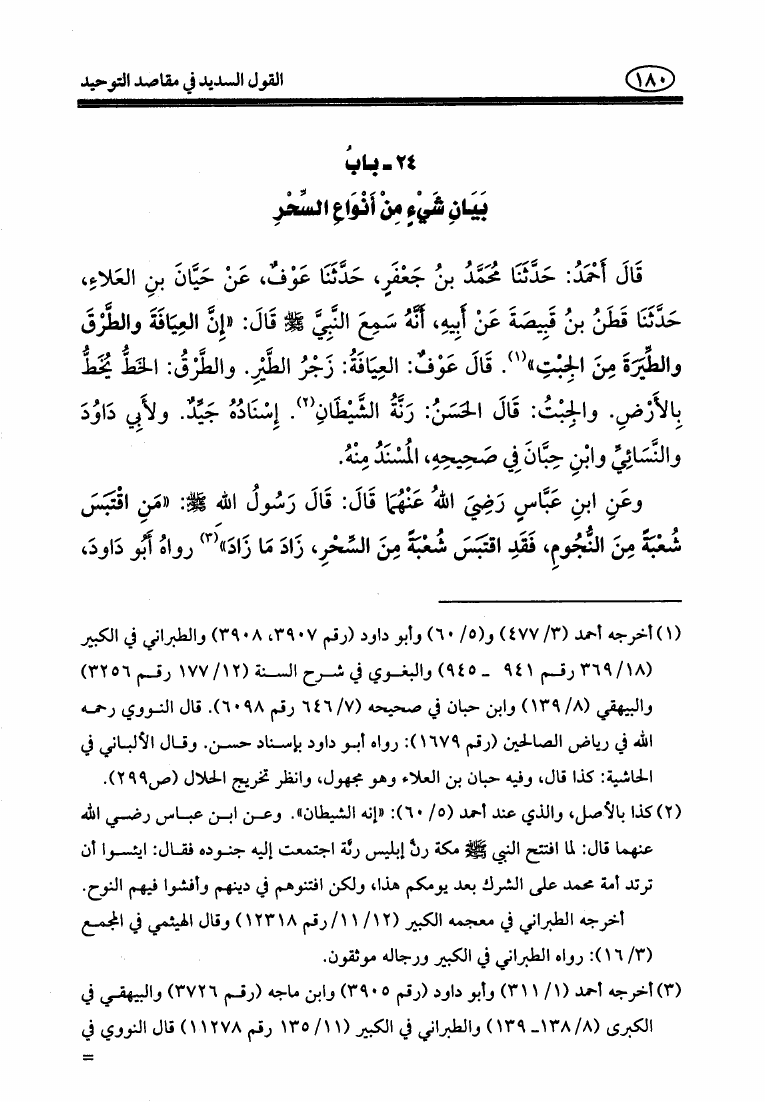 القول السديد في مقاصد التوحيد
١٨٠
٢٤ - بابُ
بَيَانِ شَيْءٍ مِنْ أَنْوَاعِ السِّحْرِ
قَالَ أَحْمَدُ: حَدَّثَنَا مُحَمَّدُ بنُ جَعْفَرٍ، حَدَّثَنَا عَوْفٌ، عَنْ حَيَّانَ بنِ العَلاءِ،
حَدَّثَنَا قَطَنُ بنُ قَبِيصَةَ عَنْ أَبِيهِ، أَنَّهُ سَمِعَ النَّبِيَّ ﷺ قَالَ: «إِنَّ العِيَافَةَ والطَّرْقَ
والطِّيَرَةَ مِنَ الجِبْتِ»(١). قَالَ عَوْفٌ: العِيَافَةُ: زَجْرُ الطَّيْرِ. والطَّرْقُ: الخَطُّ يُخَطُّ
بِالأَرْضِ. والجِبْتُ: قَالَ الحَسَنُ: رَنَّةُ الشَّيْطَانِ(٢). إِسْنَادُهُ جَيِّدٌ. ولأَبِي دَاوُدَ
والنَّسَائِيِّ وابْنِ حِبَّانَ فِي صَحِيحِهِ، المُسْنَدُ مِنْهُ.
وعَنِ ابنِ عَبَّاسٍ رَضِيَ اللهُ عَنْهُمَا قَالَ: قَالَ رَسُولُ الله ﷺ: «مَنِ اقْتَبَسَ
شُعْبَةً مِنَ النُّجُومِ، فَقَدِ اقْتَبَسَ شُعْبَةً مِنَ السِّحْرِ، زَادَ مَا زَادَ»(٣) رواهُ أَبُو دَاودَ،
(١) أخرجه أحمد (٣/ ٤٧٧) و(٥/ ٦٠) وأبو داود (رقم ٣٩٠٧، ٣٩٠٨) والطبراني في الكبير
(١٨/ ٣٦٩ رقم ٩٤١ - ٩٤٥) والبغوي في شرح السنة (١٢/ ١٧٧ رقم ٣٢٥٦)
والبيهقي (٨/ ١٣٩) وابن حبان في صحيحه (٧/ ٦٤٦ رقم ٦٠٩٨). قال النووي رحمه
الله في رياض الصالحين (رقم ١٦٧٩): رواه أبو داود بإسناد حسن. وقال الألباني في
الحاشية: كذا قال، وفيه حبان بن العلاء وهو مجهول، وانظر تخريج الحلال (ص٢٩٩).
(٢) كذا بالأصل، والذي عند أحمد (٥/ ٦٠): «إنه الشيطان». وعن ابن عباس رضي الله
عنهما قال: لما افتتح النبي ﷺ مكة رنَّ إبليس رنَّة اجتمعت إليه جنوده فقال: ايئسوا أن
ترتد أمة محمد على الشرك بعد يومكم هذا، ولكن افتنوهم في دينهم وأفشوا فيهم النوح.
أخرجه الطبراني في معجمه الكبير (١٢/ ١١/ رقم ١٢٣١٨) وقال الهيثمي في المجمع
(٣/ ١٦): رواه الطبراني في الكبير ورجاله موثقون.
(٣) أخرجه أحمد (١/ ٣١١) وأبو داود (رقم ٣٩٠٥) وابن ماجه (رقم ٣٧٢٦) والبيهقي في
الكبرى (٨/ ١٣٨- ١٣٩) والطبراني في الكبير (١١/ ١٣٥ رقم ١١٢٧٨) قال النووي في
=